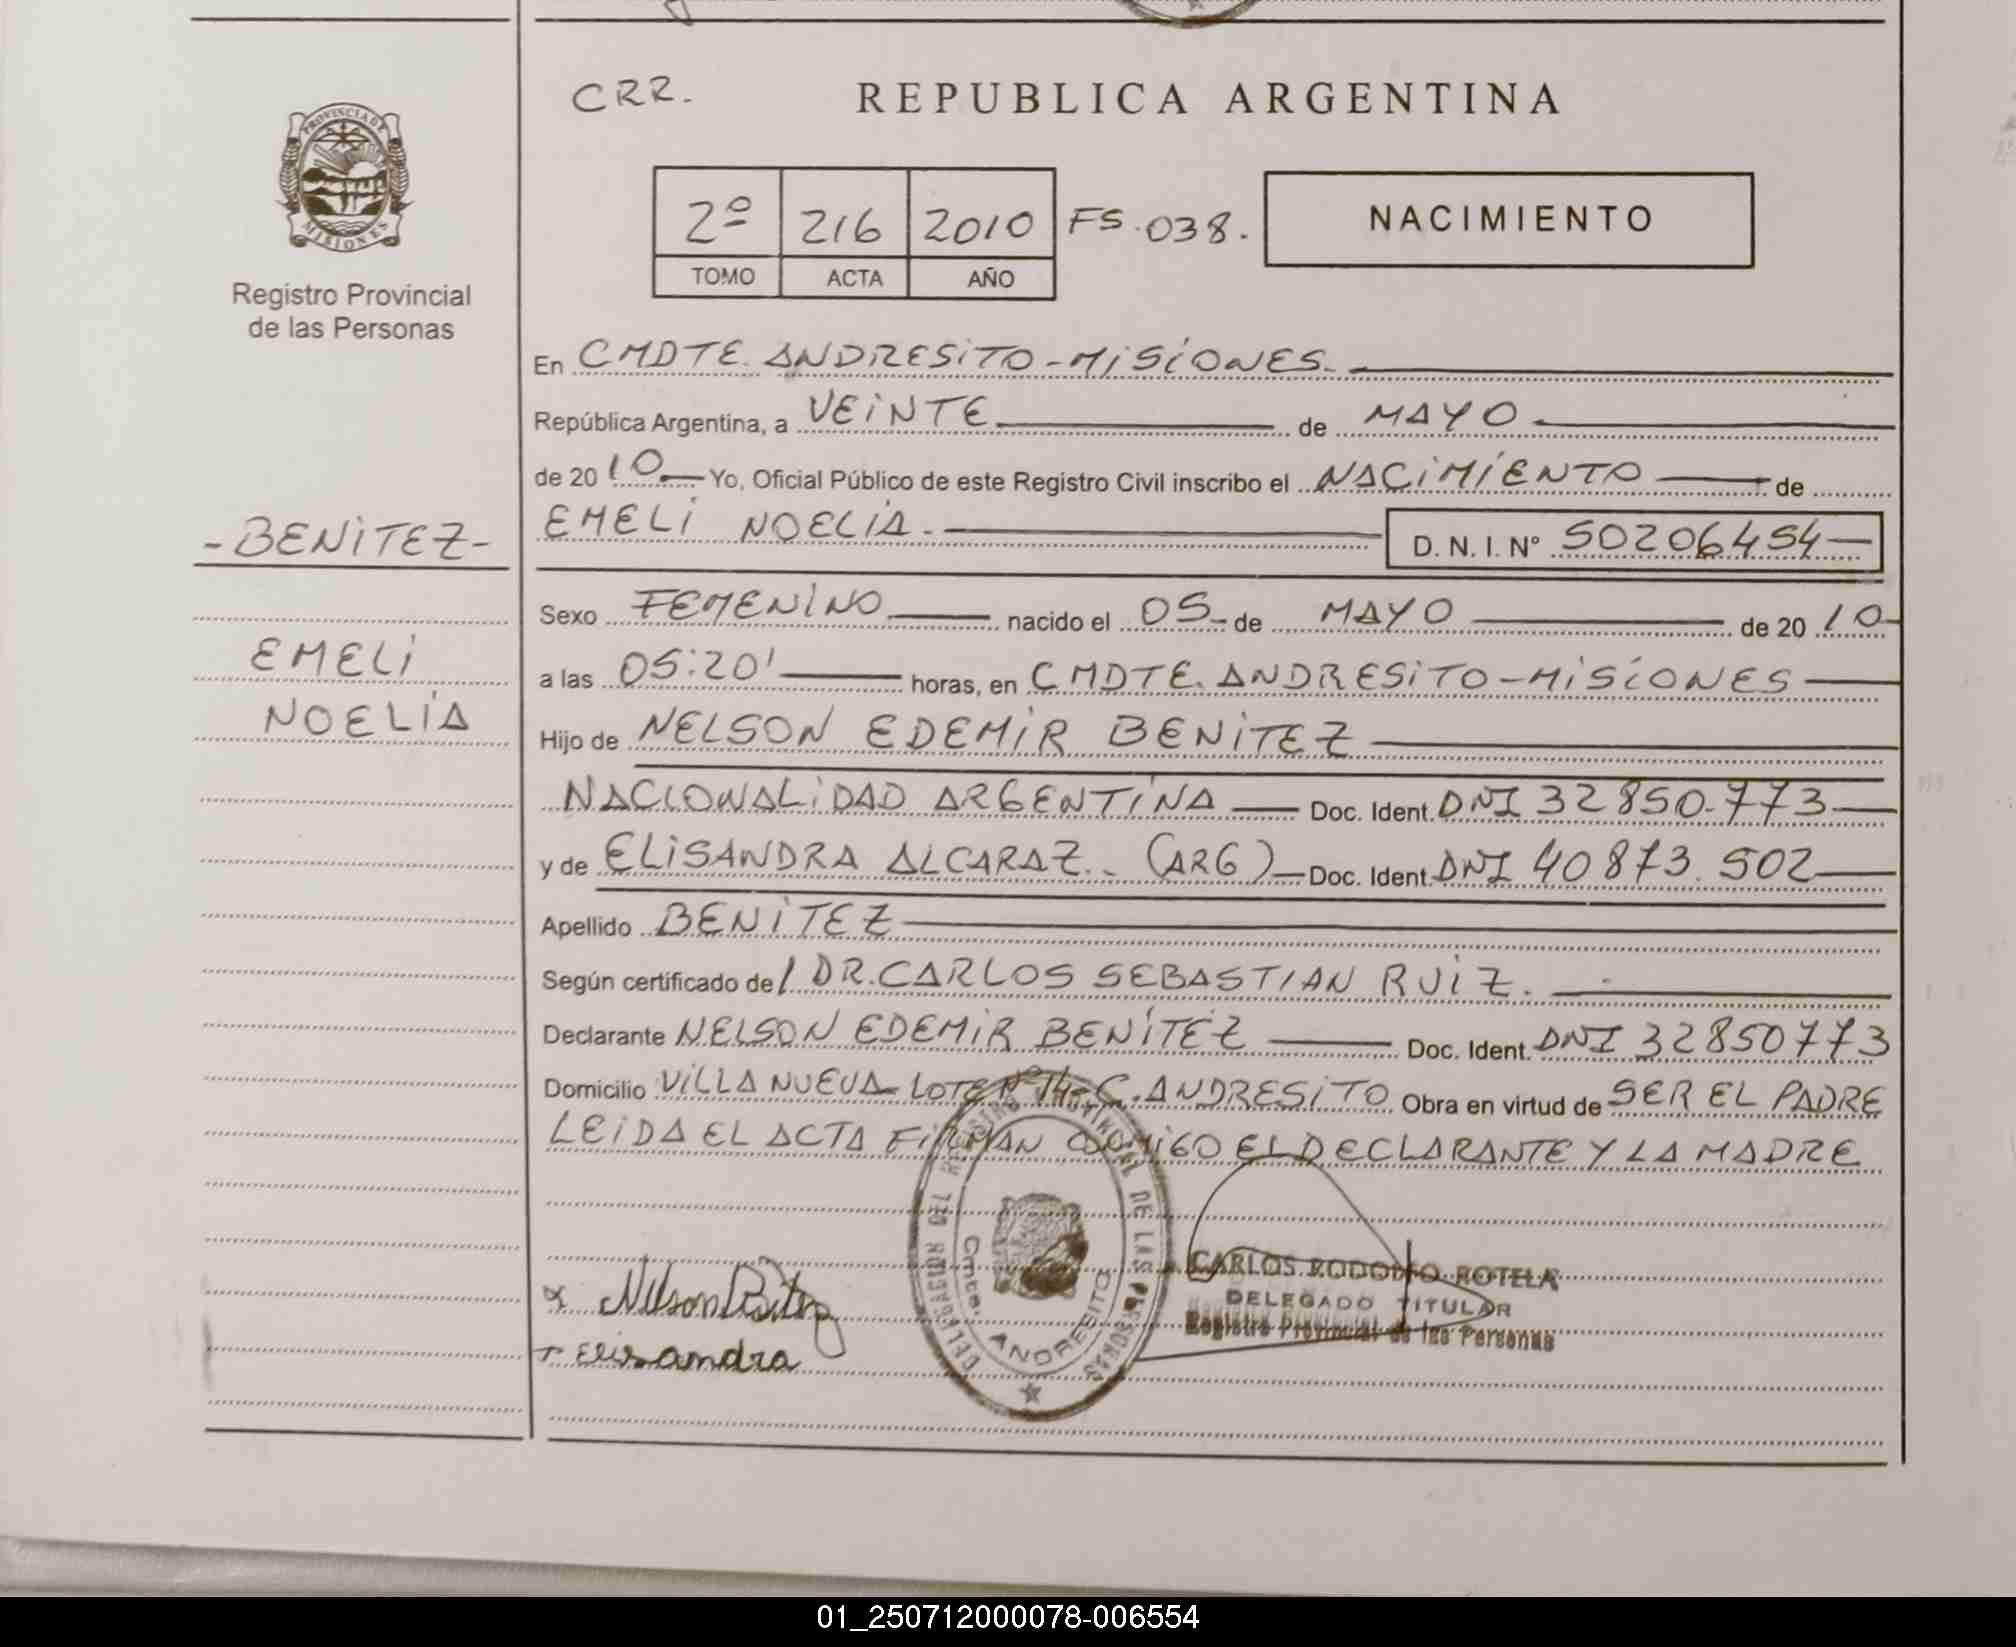 CRR.
REPUBLICA ARGENTINA
PROVINCIA DE
MISIONES
2º 216 2010 FS.038.
TOMO ACTA AÑO
NACIMIENTO
Registro Provincial
de las Personas
-BENITEZ-
EMELI
NOELIA
En CMDTE. ANDRESITO-MISIONES.
República Argentina, a VEINTE de MAYO
de 2010 Yo, Oficial Público de este Registro Civil inscribo el NACIMIENTO de
EMELI NOELIA. D. N. I. N° 50206454
Sexo FEMENINO nacido el 05 de MAYO de 2010
a las 05:20' horas, en CMDTE. ANDRESITO-MISIONES
Hijo de NELSON EDEMIR BENITEZ
NACIONALIDAD ARGENTINA Doc. Ident. DNI 32850.773
y de ELISANDRA ALCARAZ.. (ARG) Doc. Ident. DNI 40873.502
Apellido BENITEZ
Según certificado de/ DR.CARLOS SEBASTIAN RUIZ.
Declarante NELSON EDEMIR BENITEZ Doc. Ident. DNI 32850773
Domicilio VILLA NUEVA-LOTE Nº 14-C.ANDRESITO Obra en virtud de SER EL PADRE
LEIDA EL ACTA FIRMAN CONMIGO EL DECLARANTE Y LA MADRE
DELEGACION DEL REGISTRO PROVINCIAL DE LAS PERSONAS
Cmte. ANDRESITO
CARLOS RODOLFO ROTELA
DELEGADO TITULAR
Registro Provincial de las Personas
x Nelson Bitez
Elisandra
01_250712000078-006554